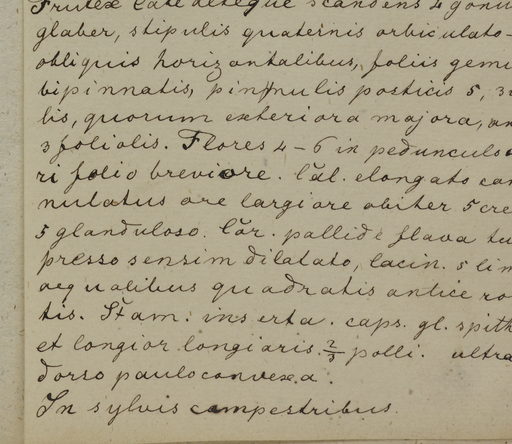 Frutex late deteque scandens 4 gonu
glaber, stipulis quaternis orbiculato-
obliquis horizontalibus, foliis gemi
bipinnatis, pinnulis posticis 5, 3
lis, quorum exteriora majora, an
3 foliolis. Flores 4-6 in pedunculo
ri folio breviore. Cal. elongato cam
nulatus ore largiore obiter 5 cre
5 glanduloso. Cor. pallide flava tu
presso sensim dilatato, lacin. 5 lim
aequalibus quadratis antice ro
tis. Stam. inserta. caps. gl. spith
et longior longioris. 2/3 polli. ultra
dorso paulo convexa.
In sylvis campestribus.